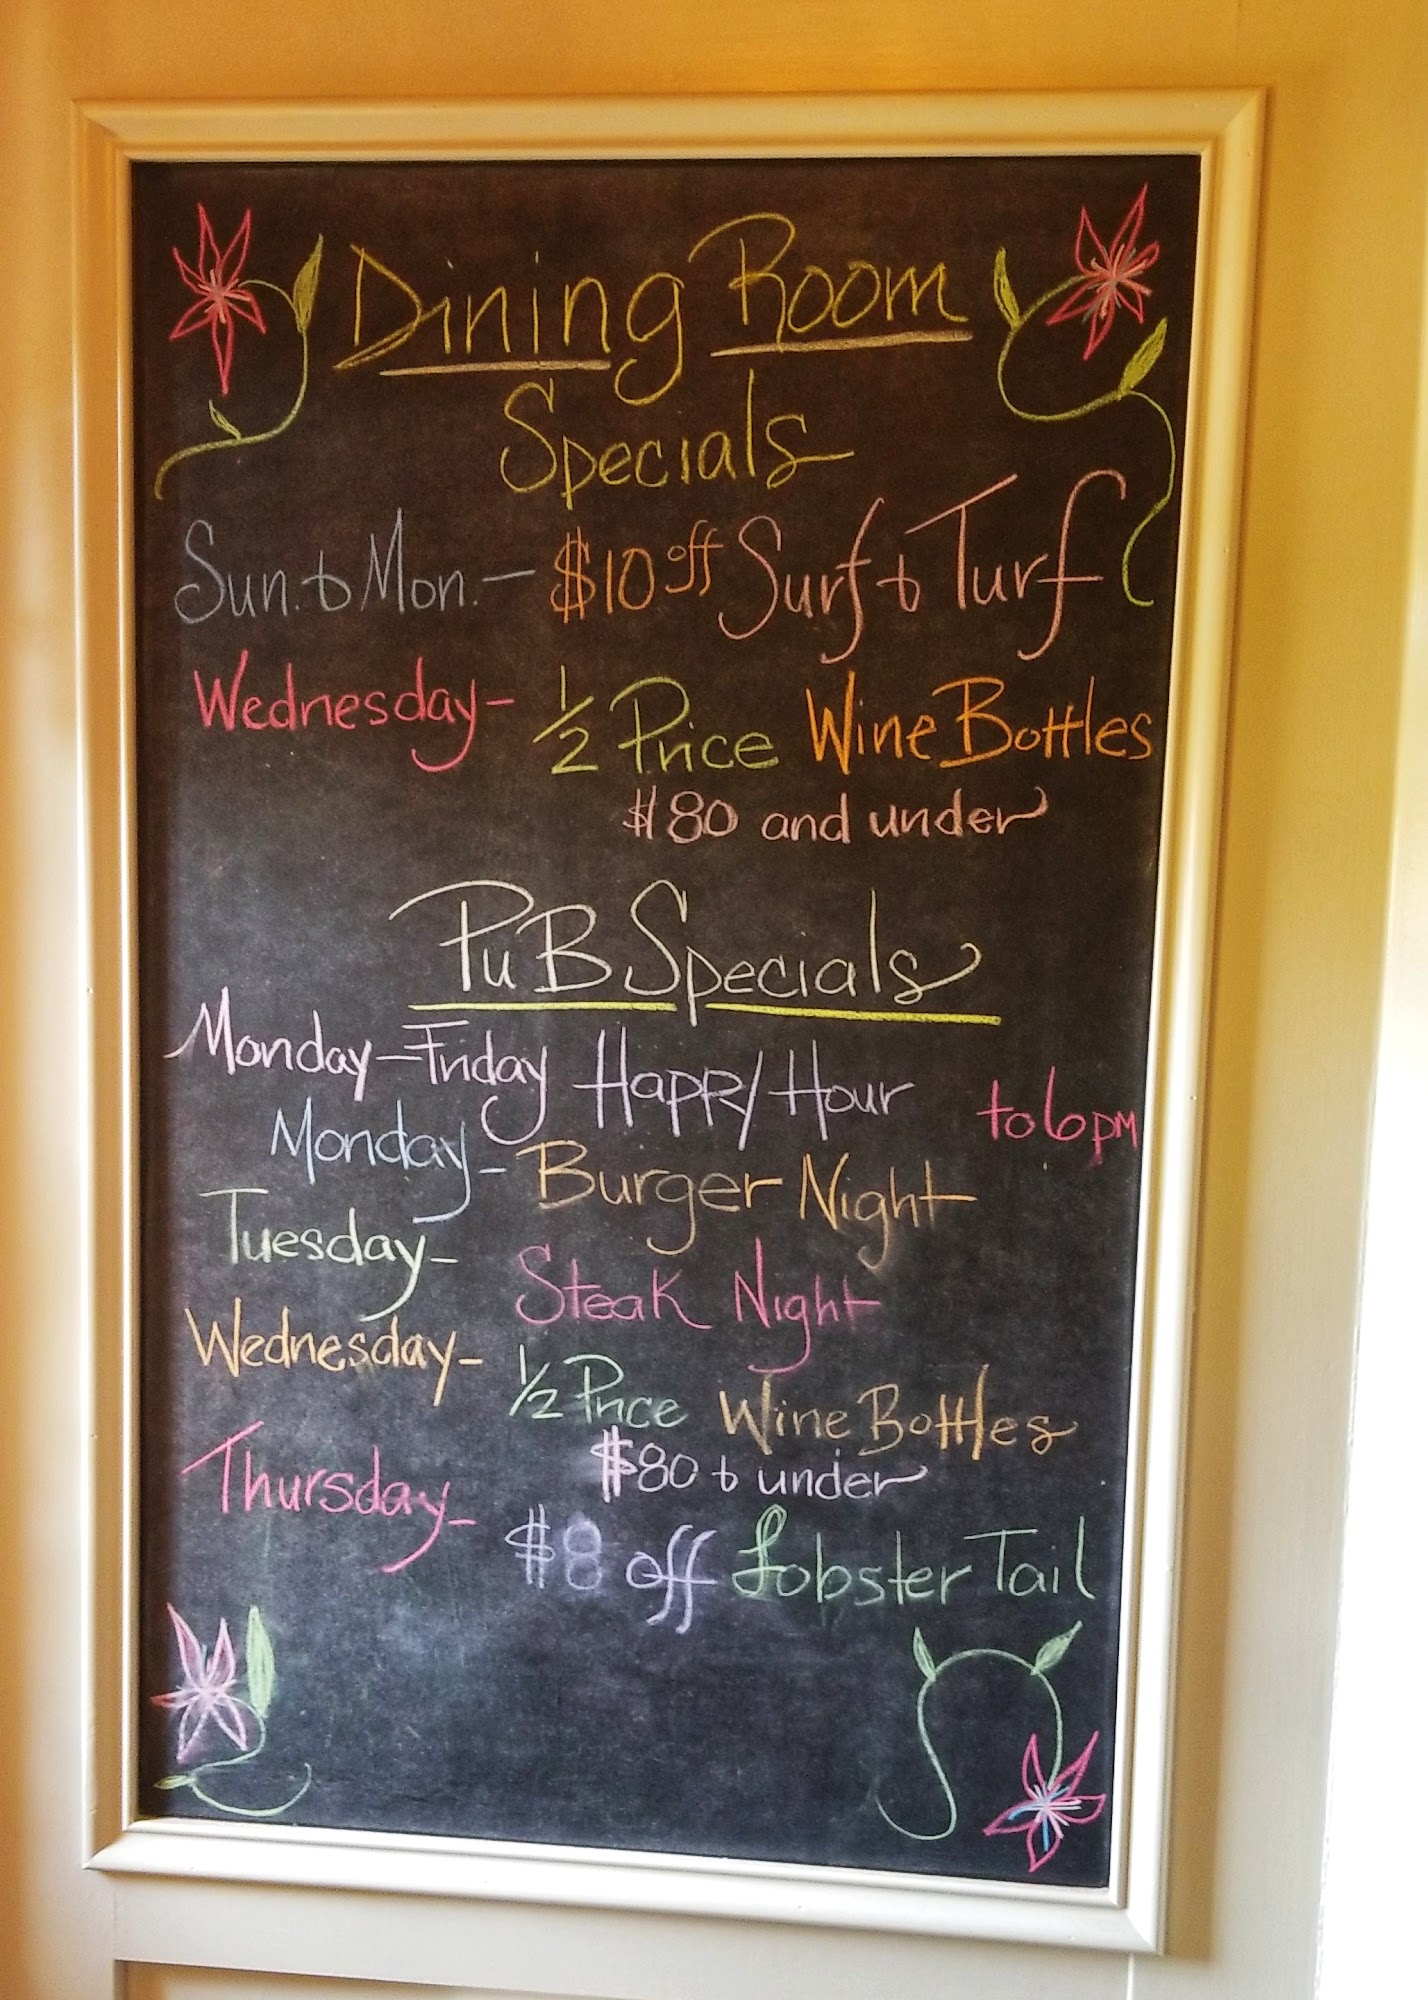 Dining Room
Specials
Sun. & Mon. - $10 off Surf & Turf
Wednesday - 1/2 Price Wine Bottles
$80 and under
PuB Specials
Monday - Friday Happy Hour to 6 pm
Monday - Burger Night
Tuesday - Steak Night
Wednesday - 1/2 Price Wine Bottles
$80 & under
Thursday - $8 off Lobster Tail